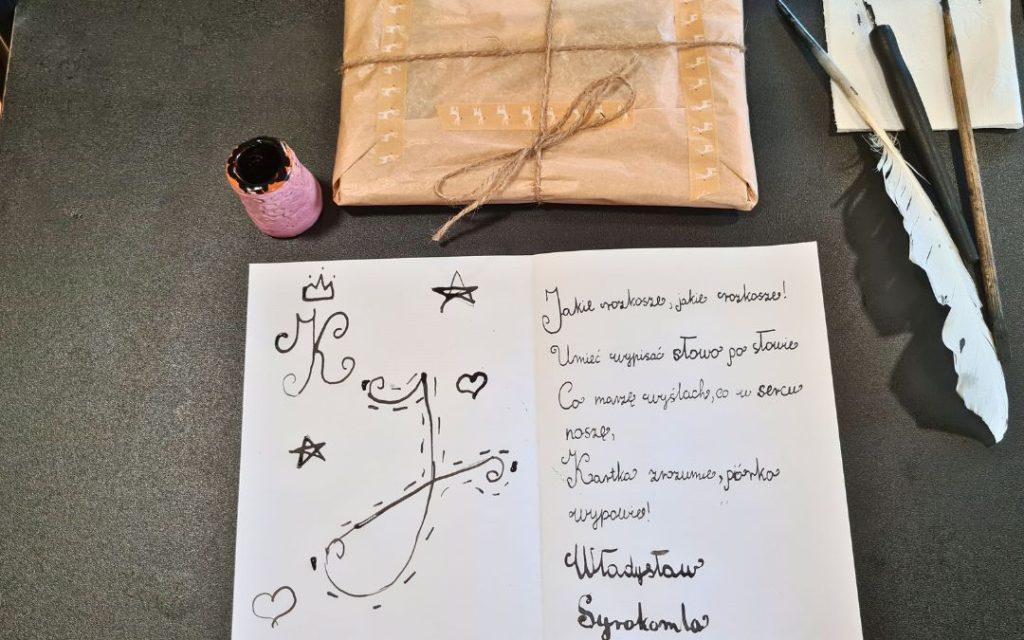 K
J
Jakie rozkosze, jakie rozkosze!
Umieć wypisać słowo po słowie
Co marzę wyślach, co w sercu
noszę,
Kartka zrozumie, piórko
wypowie!
Władysław
Syrokomla